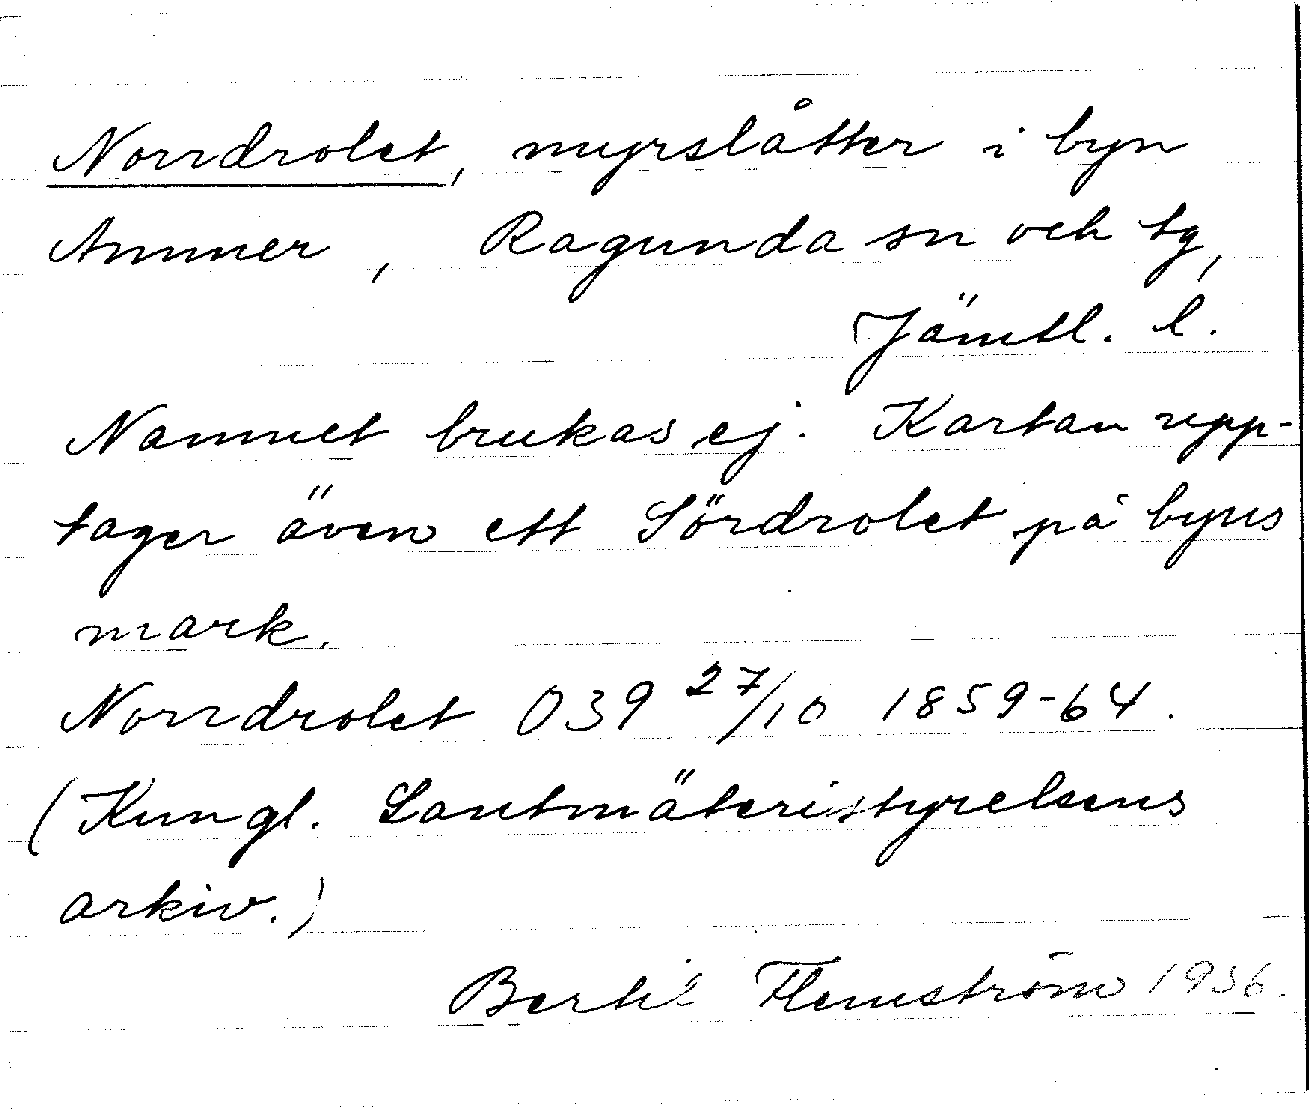 Norrdrolet, myrslåtter i byn
Ammer, Ragunda sn och tg,
Jämtl. l.
Namnet brukas ej. Kartan upp-
tager även ett Sördrolet på byns
mark.
Norrdrolet O39 27/10 1859-64.
(Kungl. Lantmäteristyrelsens
arkiv.)
Bertil Flemström 1956.